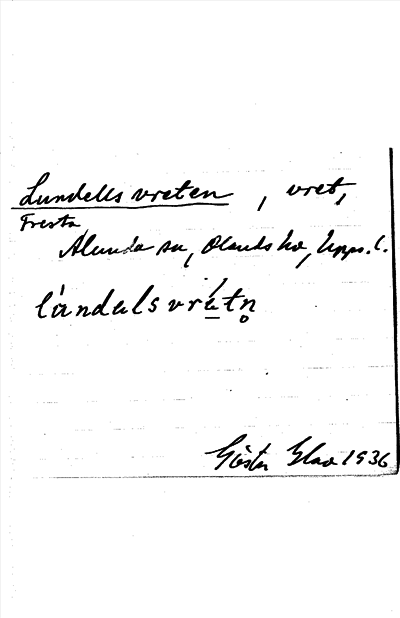 Lundells vreten, vret,
Fresta
Alunda sn, Olands hd, Upps. l.
lándalsvré̲tn̥
Gösta
1936